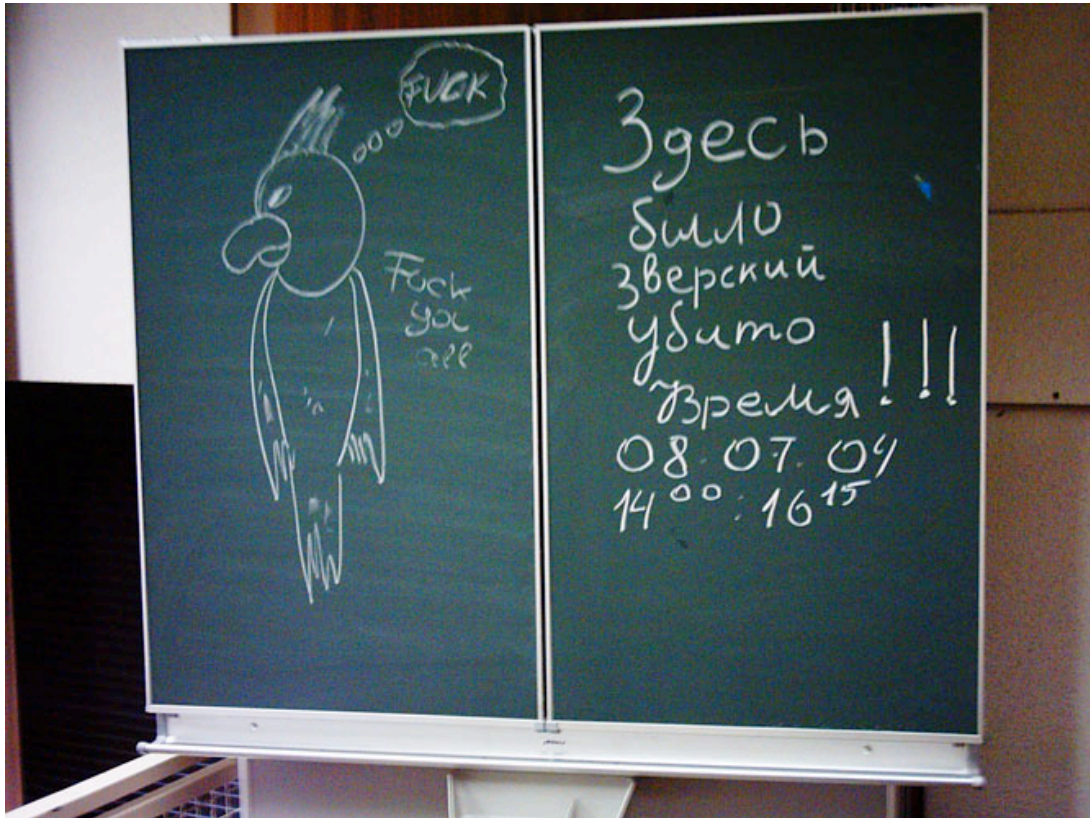 FUCK
Fuck
you
all
Здесь
было
зверский
убито
время!!!
08.07.04
14⁰⁰:16¹⁵